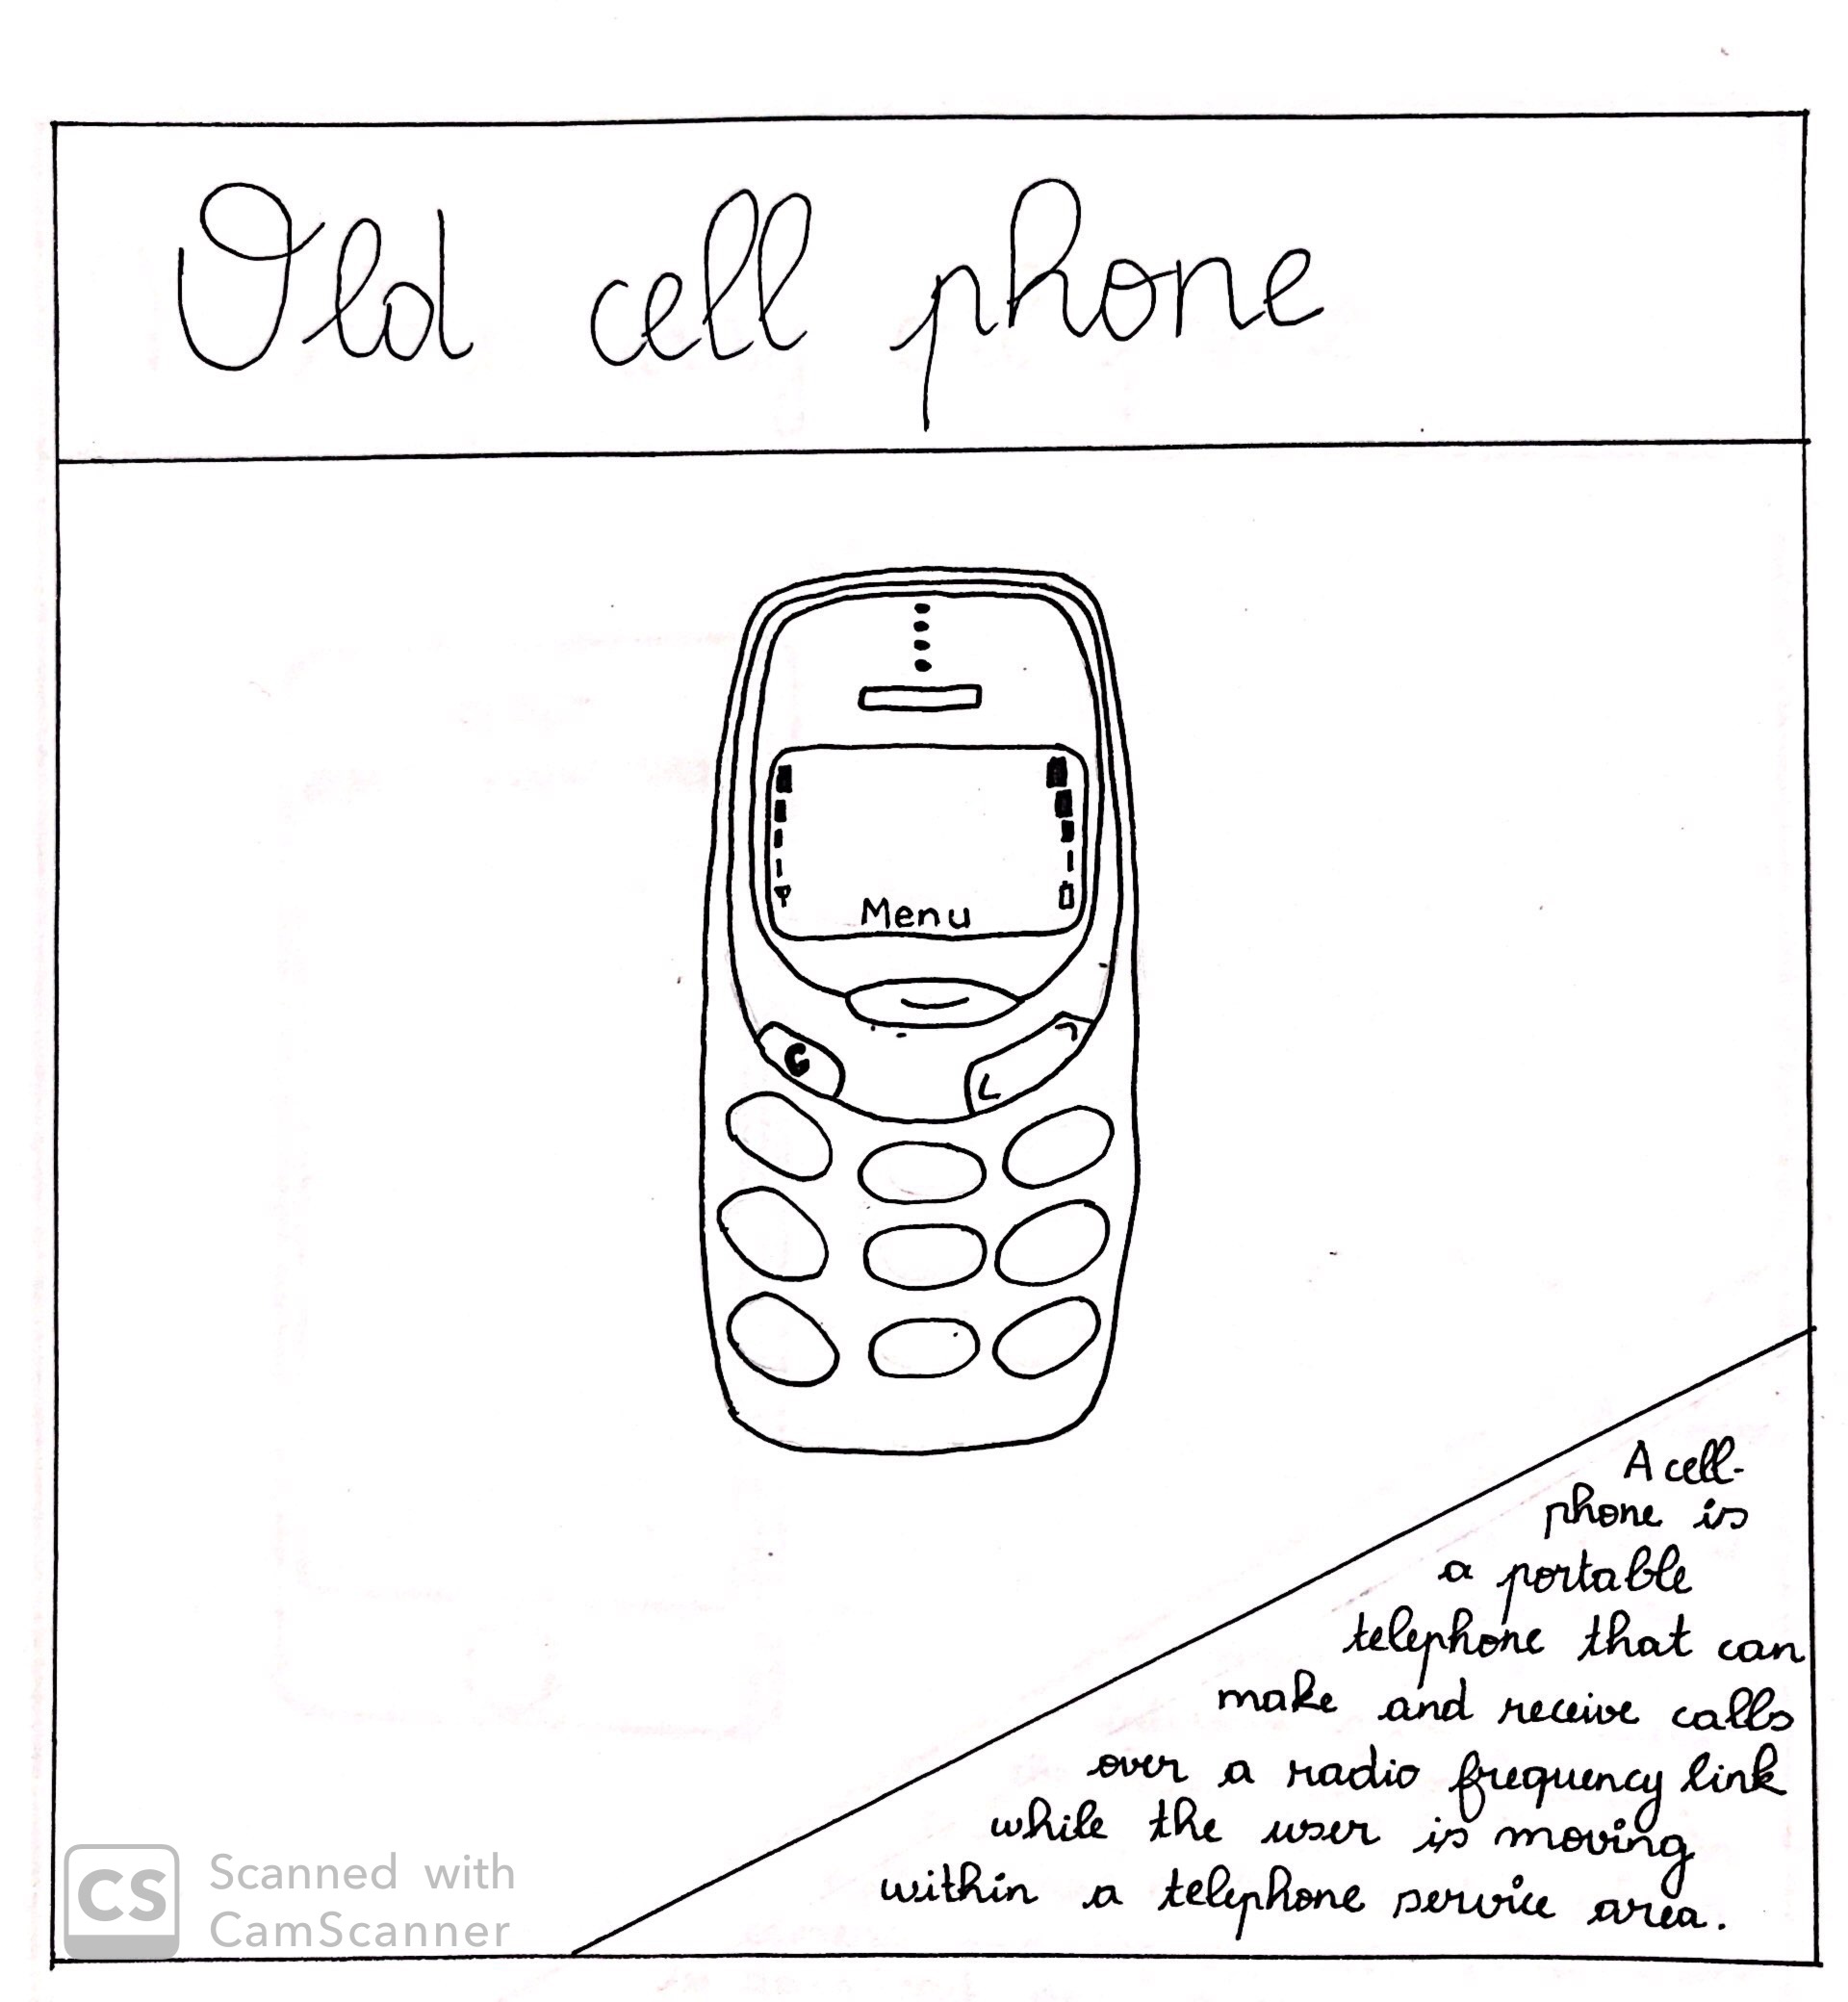 Old cell phone
Menu
C
A cell-
phone is
a portable
telephone that can
make and receive calls
over a radio frequency link
while the user is moving
within a telephone service area.
CS
Scanned with
CamScanner